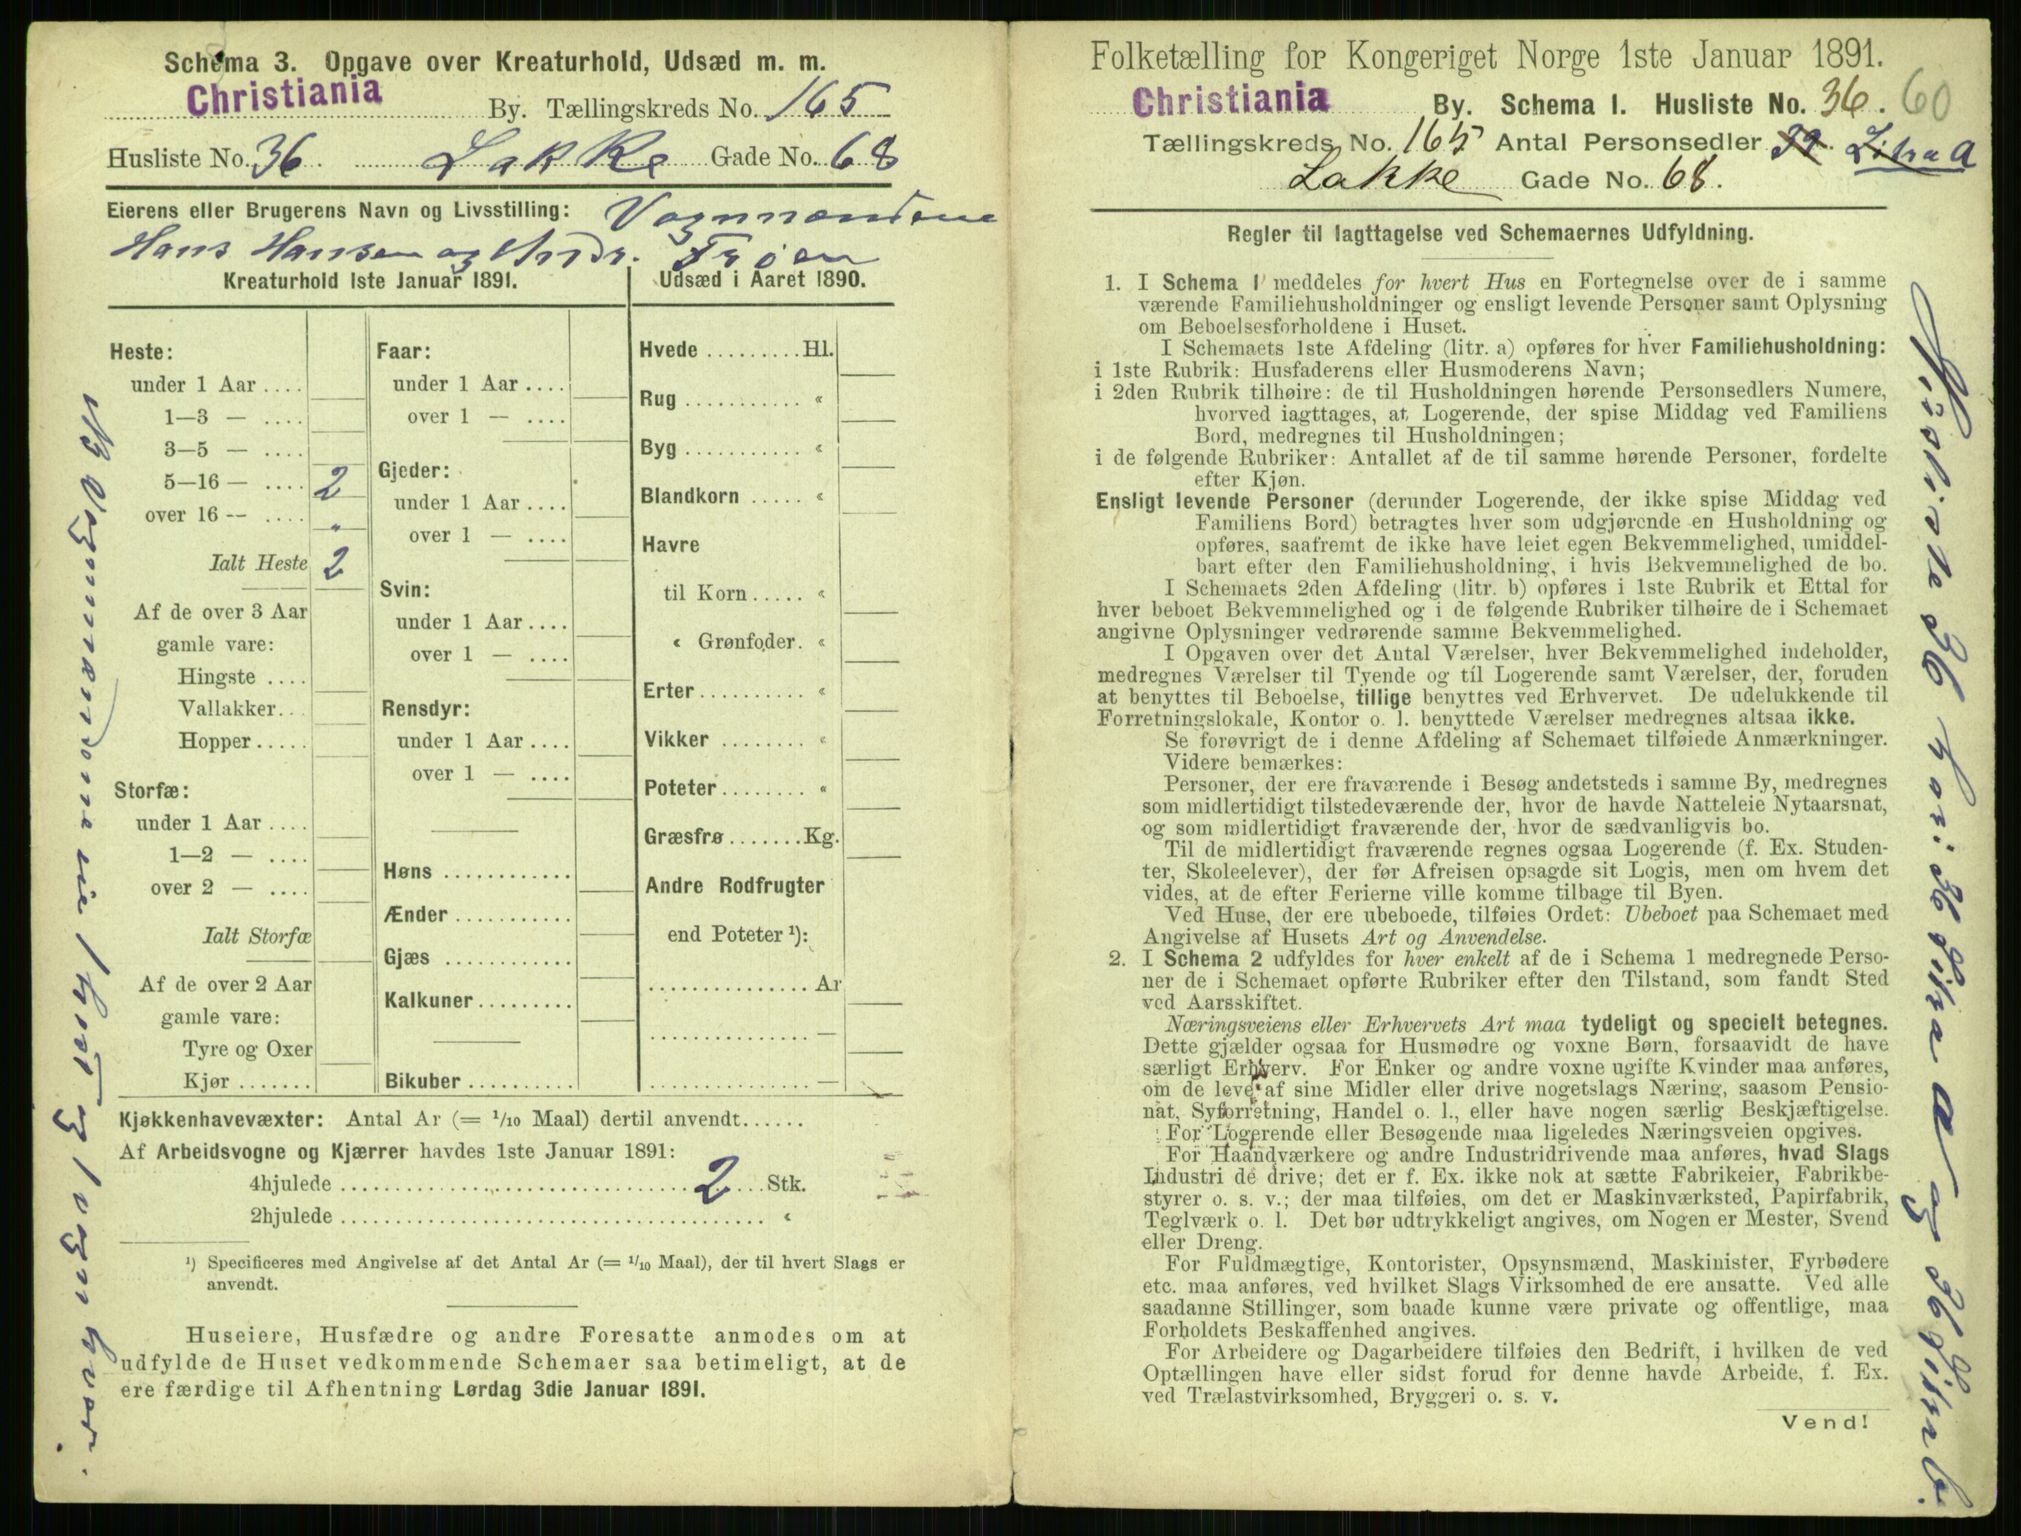 Schema 3. Opgave over Kreaturhold, Udsæd m. m.
Christiania By. Tællingskreds No. 165
Husliste No. 36 Lakke Gade No. 68
Eierens eller Brugerens Navn og Livsstilling: Vognmændene
Hans Hansen og Andr. Frøen
Kreaturhold 1ste Januar 1891.
Heste:
under 1 Aar ....
1—3 — ....
3—5 — ....
5—16 — .... 2
over 16 -- .... "
Ialt Heste 2
Af de over 3 Aar
gamle vare:
Hingste ....
Vallakker...
Hopper.....
Storfæ:
under 1 Aar ....
1—2 — ....
over 2 — ....
Ialt Storfæ
Af de over 2 Aar
gamle vare:
Tyre og Oxer
Kjør.......
Faar:
under 1 Aar ....
over 1 — ....
Gjeder:
under 1 Aar ....
over 1 — ....
Svin:
under 1 Aar ....
over 1 — ....
Rensdyr:
under 1 Aar ....
over 1 — ....
Høns ............
Ænder ...........
Gjæs ............
Kalkuner.........
Bikuber ..........
Udsæd i Aaret 1890.
Hvede .........Hl.
Rug ........... «
Byg ........... «
Blandkorn ..... «
Havre
til Korn..... «
« Grønfoder. «
Erter.......... «
Vikker ........ «
Poteter........ «
Græsfrø.......Kg.
Andre Rodfrugter
end Poteter ¹):
...............Ar
............... —
............... —
Kjøkkenhavevæxter: Antal Ar (= 1/10 Maal) dertil anvendt......
Af Arbeidsvogne og Kjærrer havdes 1ste Januar 1891:
4hjulede ........ 2 ...Stk.
2hjulede ........ «
¹) Specificeres med Angivelse af det Antal Ar (= 1/10 Maal), der til hvert Slags er
anvendt.
Huseiere, Husfædre og andre Foresatte anmodes om at
udfylde de Huset vedkommende Schemaer saa betimeligt, at de
ere færdige til Afhentning Lørdag 3die Januar 1891.
NB Vognmændene eie 1 hest og 1 vogn hver.
Folketælling for Kongeriget Norge 1ste Januar 1891.
Christiania By. Schema I. Husliste No. 36. 60
Tællingskreds No. 165 Antal Personsedler 39. Litra A
Lakke Gade No. 68.
Regler til Iagttagelse ved Schemaernes Udfyldning.
1. I Schema 1 meddeles for hvert Hus en Fortegnelse over de i samme
værende Familiehusholdninger og ensligt levende Personer samt Oplysning
om Beboelsesforholdene i Huset.
I Schemaets 1ste Afdeling (litr. a) opføres for hver Familiehusholdning:
i 1ste Rubrik: Husfaderens eller Husmoderens Navn;
i 2den Rubrik tilhøire: de til Husholdningen hørende Personsedlers Numere,
hvorved iagttages, at Logerende, der spise Middag ved Familiens
Bord, medregnes til Husholdningen;
i de følgende Rubriker: Antallet af de til samme hørende Personer, fordelte
efter Kjøn.
Ensligt levende Personer (derunder Logerende, der ikke spise Middag ved
Familiens Bord) betragtes hver som udgjørende en Husholdning og
opføres, saafremt de ikke have leiet egen Bekvemmelighed, umiddel-
bart efter den Familiehusholdning, i hvis Bekvemmelighed de bo.
I Schemaets 2den Afdeling (litr. b) opføres i 1ste Rubrik et Ettal for
hver beboet Bekvemmelighed og i de følgende Rubriker tilhøire de i Schemaet
angivne Oplysninger vedrørende samme Bekvemmelighed.
I Opgaven over det Antal Værelser, hver Bekvemmelighed indeholder,
medregnes Værelser til Tyende og til Logerende samt Værelser, der, foruden
at benyttes til Beboelse, tillige benyttes ved Erhvervet. De udelukkende til
Forretningslokale, Kontor o. l. benyttede Værelser medregnes altsaa ikke.
Se forøvrigt de i denne Afdeling af Schemaet tilføiede Anmærkninger.
Videre bemærkes:
Personer, der ere fraværende i Besøg andetsteds i samme By, medregnes
som midlertidigt tilstedeværende der, hvor de havde Natteleie Nytaarsnat,
og som midlertidigt fraværende der, hvor de sædvanligvis bo.
Til de midlertidigt fraværende regnes ogsaa Logerende (f. Ex. Studen-
ter, Skoleelever), der før Afreisen opsagde sit Logis, men om hvem det
vides, at de efter Ferierne ville komme tilbage til Byen.
Ved Huse, der ere ubeboede, tilføies Ordet: Ubeboet paa Schemaet med
Angivelse af Husets Art og Anvendelse.
2. I Schema 2 udfyldes for hver enkelt af de i Schema 1 medregnede Perso-
ner de i Schemaet opførte Rubriker efter den Tilstand, som fandt Sted
ved Aarsskiftet.
Næringsveiens eller Erhvervets Art maa tydeligt og specielt betegnes.
Dette gjælder ogsaa for Husmødre og voxne Børn, forsaavidt de have
særligt Erhverv. For Enker og andre voxne ugifte Kvinder maa anføres,
om de leve af sine Midler eller drive nogetslags Næring, saasom Pensio-
nat, Syforretning, Handel o. l., eller have nogen særlig Beskjæftigelse.
For Logerende eller Besøgende maa ligeledes Næringsveien opgives.
For Haandværkere og andre Industridrivende maa anføres, hvad Slags
Industri de drive; det er f. Ex. ikke nok at sætte Fabrikeier, Fabrikbe-
styrer o. s. v.; der maa tilføies, om det er Maskinværksted, Papirfabrik,
Teglværk o. l. Det bør udtrykkeligt angives, om Nogen er Mester, Svend
eller Dreng.
For Fuldmægtige, Kontorister, Opsynsmænd, Maskinister, Fyrbødere
etc. maa anføres, ved hvilket Slags Virksomhed de ere ansatte. Ved alle
saadanne Stillinger, som baade kunne være private og offentlige, maa
Forholdets Beskaffenhed angives.
For Arbeidere og Dagarbeidere tilføies den Bedrift, i hvilken de ved
Optællingen have eller sidst forud for denne havde Arbeide, f. Ex.
ved Trælastvirksomhed, Bryggeri o. s. v.
Vend!
Husliste 36 har: 36 Litra a og 36 Litr. b.